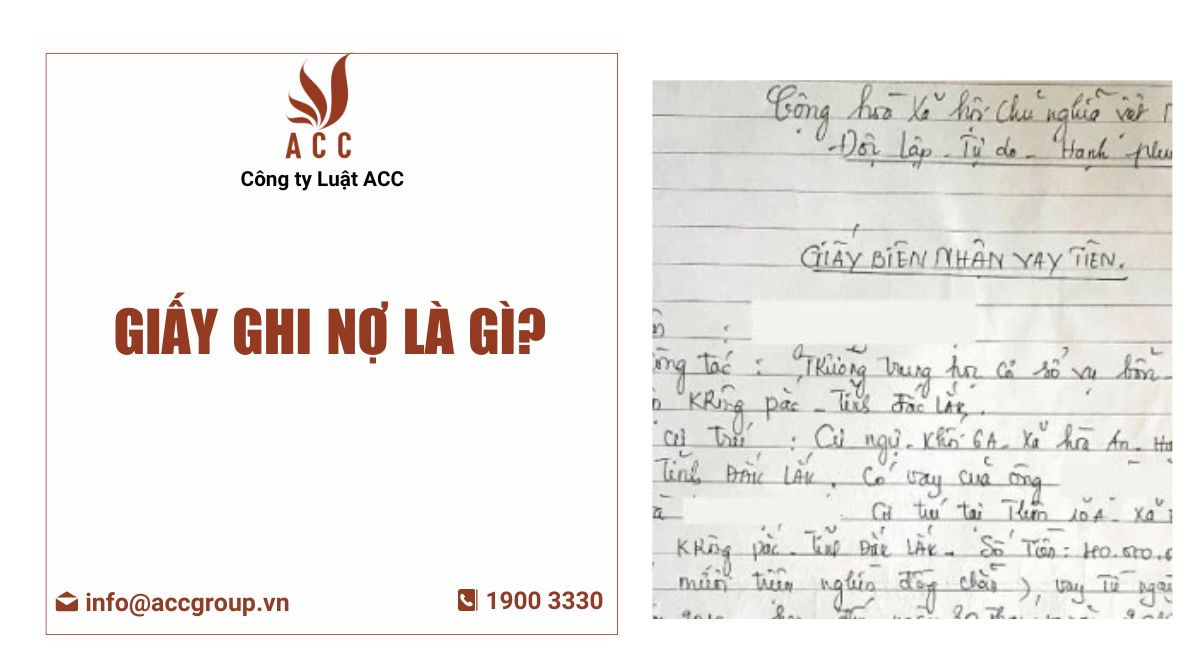 ACC
Công ty Luật ACC
GIẤY GHI NỢ LÀ GÌ?
info@accgroup.vn
1900 3330
Cộng hoà Xã hội Chủ nghĩa Việt
Độc Lập - Tự do - Hạnh phú
GIẤY BIÊN NHẬN VAY TIỀN.
:
ông tác : Trường trung học cơ sở vụ bổn -
KRông pắc - Tỉnh Đắc LẮK.
cư trú : Cư ngụ - Khối 6A - Xã hòa An - H
Tỉnh ĐẮK LẮK. Có vay của ông
Cư trú tại Thôn 10A - Xã
KRông pắc - Tỉnh ĐẮK LẮK - Số Tiền:
mươi triệu nghìn đồng chẵn), vay Từ ngà